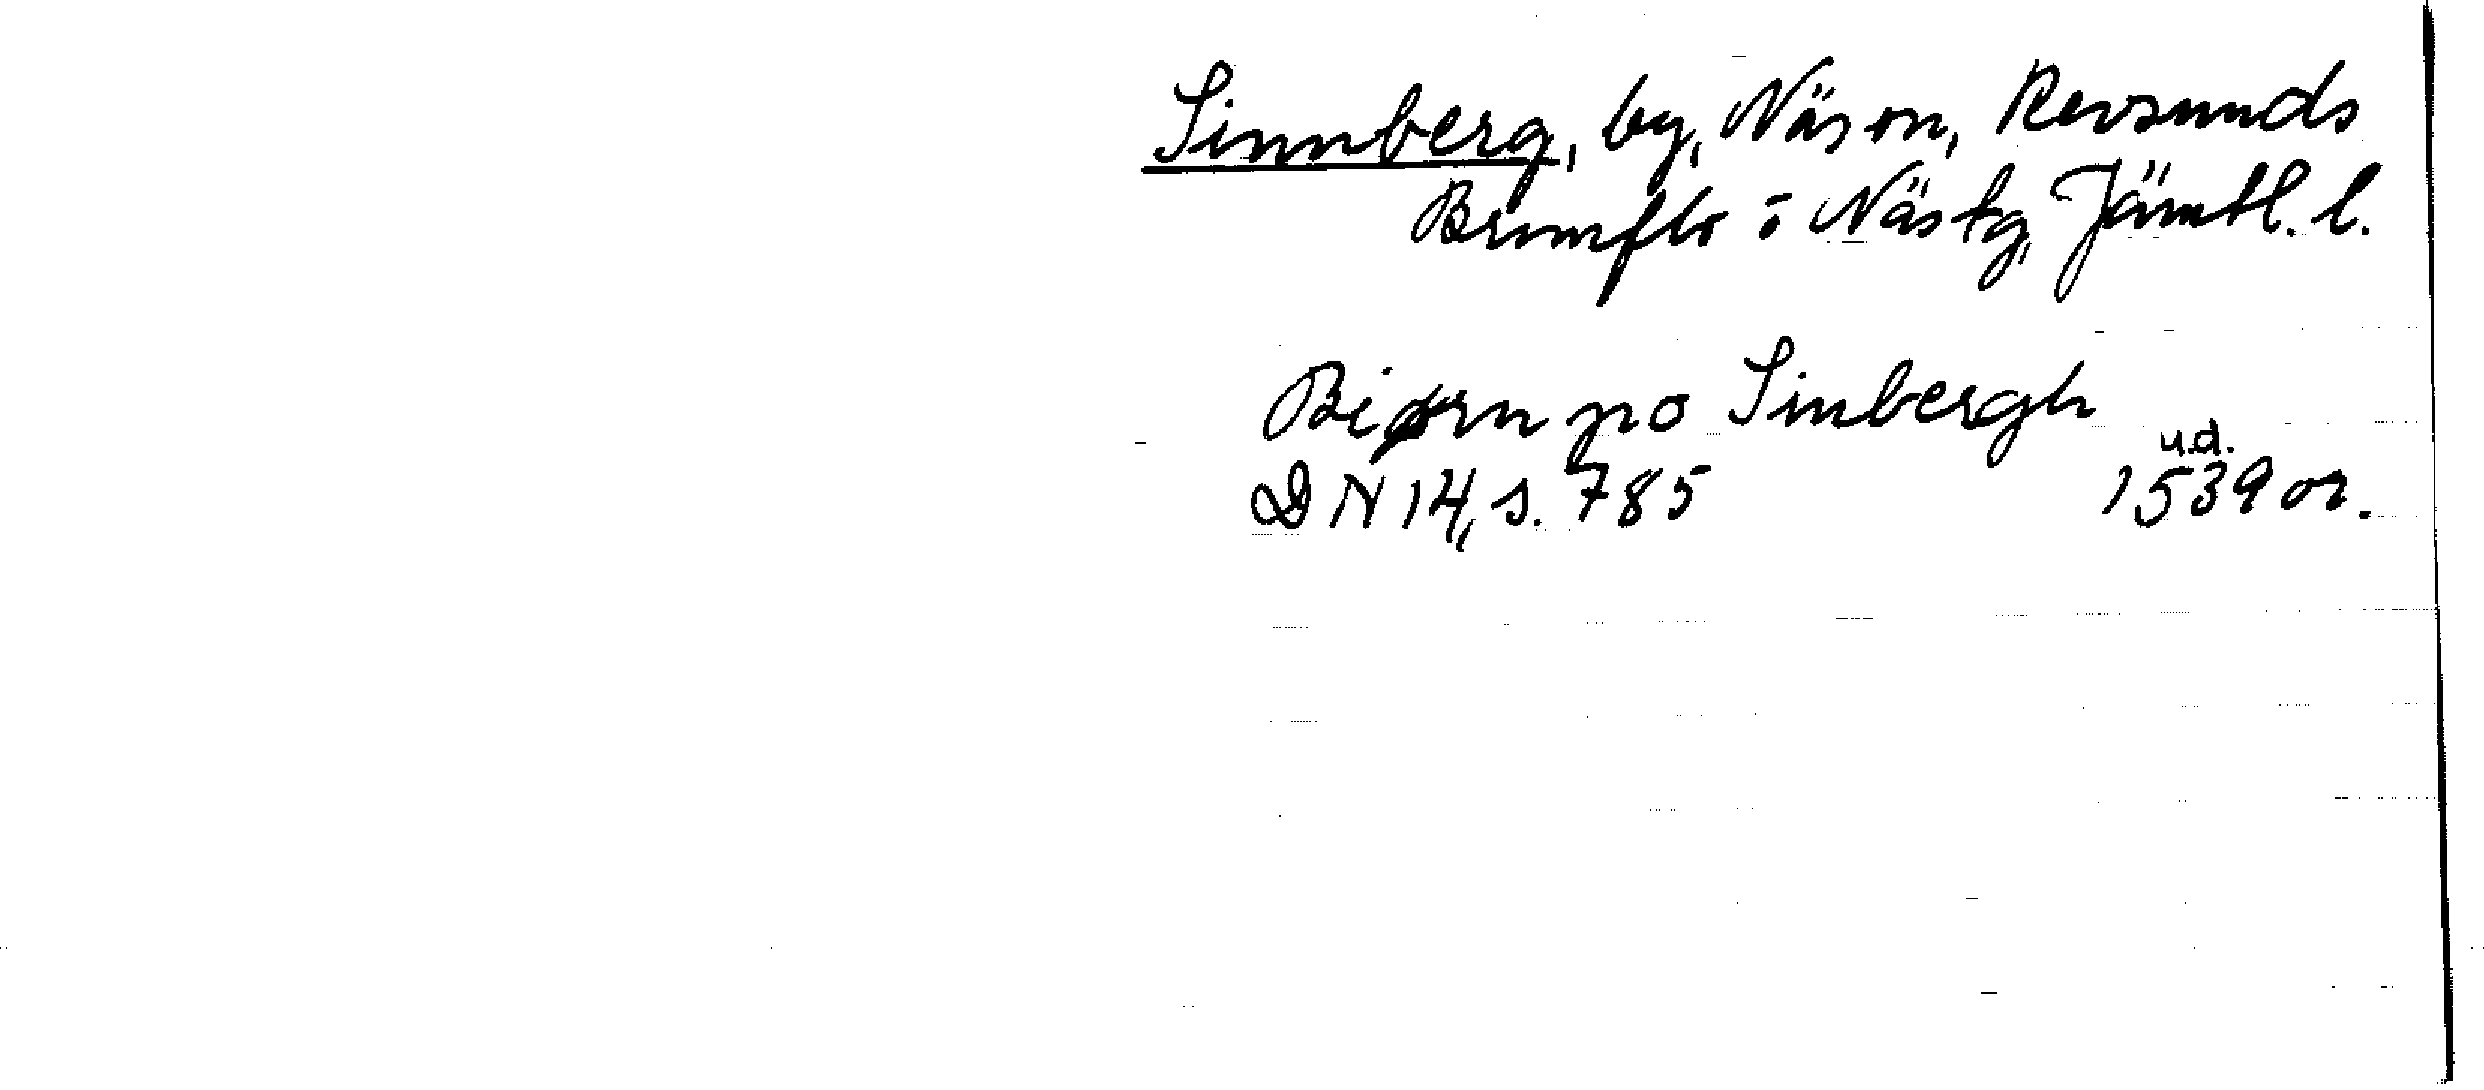 Sinnberg, by, Näs sn, Revsunds
Brunflo o Näs tg, Jämtl. l.
Biørn po Sinbergh
u.d.
DN 14, s. 785 1539 or.